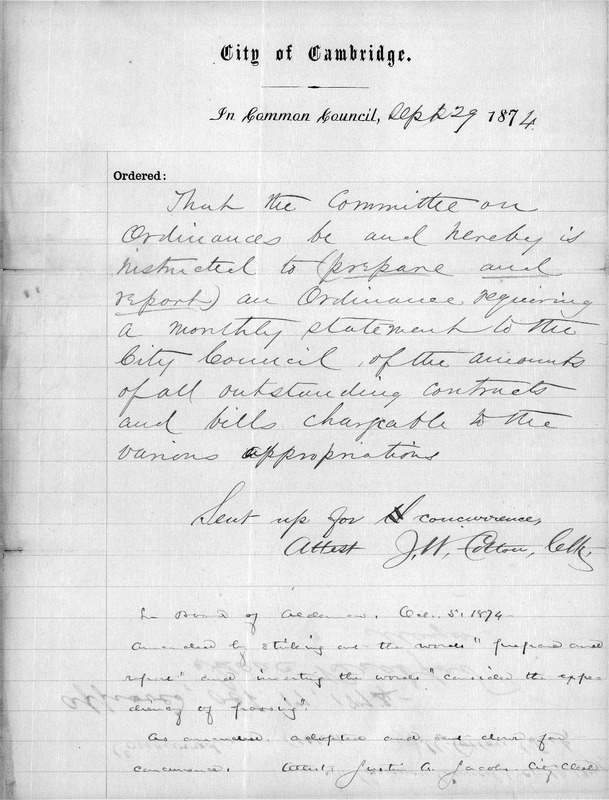 City of Cambridge.
In Common Council, Sept 29 1874
Ordered:
That the Committee on
Ordinances be and hereby is
instructed to (prepare and
report) an Ordinance requiring
a monthly statement to the
City Council, of the amounts
of all outstanding contracts
and bills chargeable to the
various appropriations
Sent up for concurrence,
Attest J. W. Cotton, Clk,
In Board of Aldermen. Oct. 5. 1874
Amended by striking out the words "prepare and
report" and inserting the words "consider the expe
diency of passing".
As amended, adopted and sent down for
concurrence. Attest, Justin A. Jacobs. City Clerk